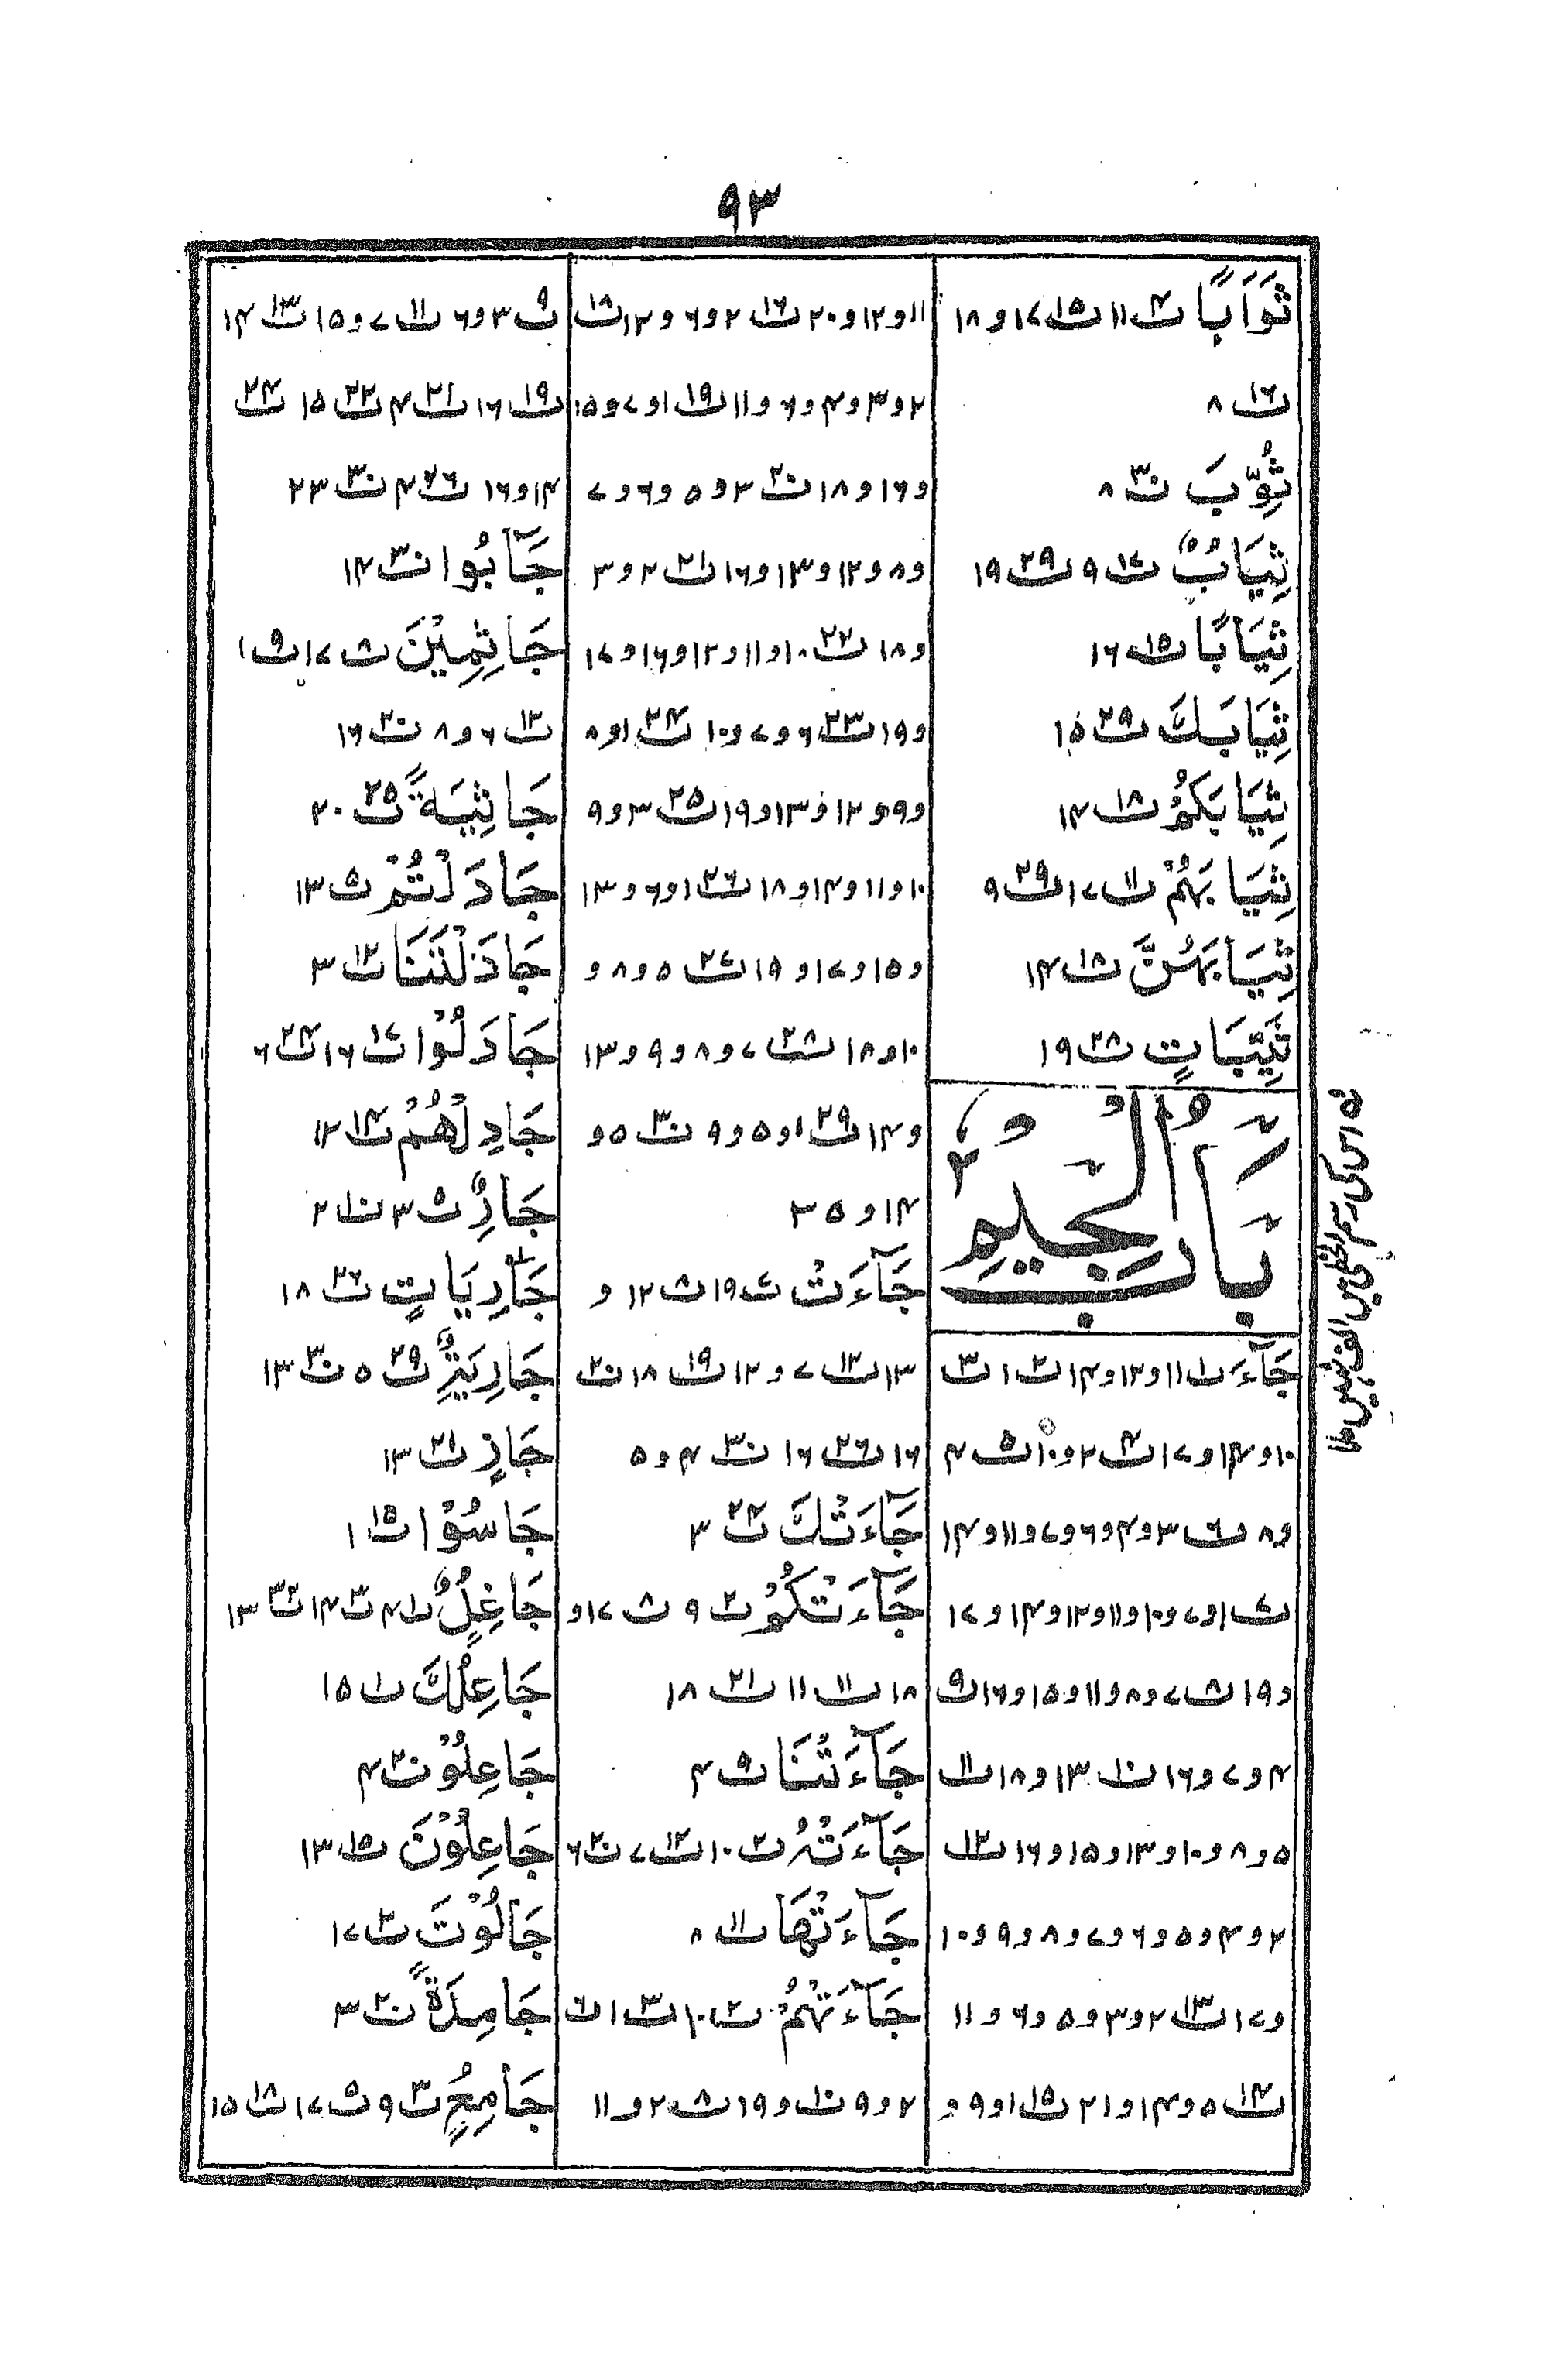 ۹۳
ثَوَابًا ت۴ ۱۱ ت۱۵ ۱۷ و ۱۸
ت۱۶ ۸
ثُوِّبَ ت۳۰ ۸
ثِيَابٌ ت۱۷ ۹ ت۲۹ ۱۹
ثِيَابًا ت۱۵ ۱۶
ثِيَابَكَ ت۲۹ ۱۵
ثِيَابَكُمْ ت۱۸ ۱۴
ثِيَابَهُمْ ت۱۱ ۱۷ ت۲۹ ۹
ثِيَابَهُنَّ ت۱۸ ۱۴
ثَيِّبَاتٍ ت۲۸ ۱۹
بَابُ الْجِيْمِ
جَآءَ ت۱ ۱۱ و ۱۲ و ۱۴ ت۲ ۱ ت۳
۱۰ و ۱۴ و ۱۷ ت۴ ۲ و ۱۰ ت۵ ۴
و ۸ ت۶ ۳ و ۴ و ۶ و ۷ و ۱۱ و ۱۴
ت۷ ۱ و ۷ و ۱۰ و ۱۱ و ۱۲ و ۱۴ و ۱۷
و ۱۹ ت۸ ۷ و ۸ و ۱۱ و ۱۵ و ۱۶ ت۹
۴ و ۷ و ۱۶ ت۱۰ ۱۳ و ۱۸ ت۱۱
۵ و ۸ و ۱۰ و ۱۳ و ۱۵ و ۱۶ ت۱۲
۲ و ۴ و ۵ و ۶ و ۷ و ۸ و ۹ و ۱۰
و ۱۷ ت۱۳ ۲ و ۳ و ۵ و ۶ و ۱۱
ت۱۴ ۵ و ۱۴ و ۲۱ ت۱۵ ۱ و ۹ و
۱۱ و ۱۲ و ۲۰ ت۱۶ ۲ و ۶ و ۱۲ ت۱۸
۲ و ۳ و ۴ و ۶ و ۱۱ ت۱۹ ۱ و ۷ و ۱۵
و ۱۶ و ۱۸ ت۲۰ ۲ و ۵ و ۶ و ۷
و ۸ و ۱۲ و ۱۳ و ۱۶ ت۲۱ ۲ و ۳
و ۱۸ ت۲۲ ۱۰ و ۱۱ و ۱۲ و ۱۶ و ۱۷
و ۱۹ ت۲۳ ۶ و ۷ و ۱۰ ت۲۴ ۱ و ۸
و ۹ و ۱۲ و ۱۳ و ۱۹ ت۲۵ ۳ و ۹
۱۰ و ۱۱ و ۱۴ و ۱۸ ت۲۶ ۱ و ۶ و ۱۳
و ۱۵ و ۱۷ و ۱۹ ت۲۷ ۵ و ۸ و
۱۰ و ۱۸ ت۲۸ ۷ و ۸ و ۹ و ۱۳
و ۱۴ ت۲۹ ۱ و ۵ و ۹ ت۳۰ ۵ و
۱۴ و ۳۵
جَآءَتْ ت۷ ۱۹ ت۸ ۱۲ و
۱۳ ت۱۲ ۷ و ۱۲ ت۱۹ ۱۸ ت۲۰
۱۶ ت۲۶ ۱۶ ت۳۰ ۴ و ۵
جَآءَتْكَ ت۲۴ ۳
جَآءَتْكُمْ ت۲ ۹ ت۸ ۱۷ و
۱۸ ت۱۱ ۱۱ ت۲۱ ۱۸
جَآءَتْنَا ت۹ ۴
جَآءَتْهُ ت۲ ۱۰ ت۱۲ ۷ ت۲۰ ۶
جَآءَتْهَا ت۱۱ ۸
جَآءَتْهُمْ ت۲ ۱۰ ت۳ ۱ ت۶
۲ و ۹ ت۱۰ و ۱۹ ت۸ ۲ و ۱۱
ت۹ ۳ و ۶ ت۱۱ ۷ و ۱۵ ت۱۳ ۱۴
ت۱۹ ۱۶ ت۲۱ ۴ ت۲۲ ۱۵ ت۲۴
۱۴ و ۱۶ ت۲۶ ۴ ت۳۰ ۲۳
جَآبُوا ت۳۰ ۱۴
جَاثِمِيْنَ ت۸ ۱۷ ت۹ ۱
ت۱۲ ۶ و ۸ ت۲۰ ۱۶
جَاثِيَةً ت۲۵ ۲۰
جَادَلْتُمْ ت۵ ۱۳
جَادَلْتَنَا ت۱۲ ۳
جَادَلُوْا ت۱۷ ۱۶ ت۲۴ ۶
جَادِلْهُمْ ت۱۴ ۲۲
جَارٌ ت۵ ۳ ت۱۰ ۲
جَارِيَاتٍ ت۲۶ ۱۸
جَارِيَةٌ ت۲۹ ۵ ت۳۰ ۱۳
جَازٍ ت۲۱ ۱۳
جَاسُوْا ت۱۵ ۱
جَاعِلٌ ت۱ ۴ ت۳ ۱۴ ت۲۲ ۱۳
جَاعِلُكَ ت۱ ۱۵
جَاعِلُوْ ت۲۰ ۴
جَاعِلُوْنَ ت۱۵ ۱۳
جَالُوْتَ ت۲ ۱۷
جَامِدَةً ت۲۰ ۳
جَامِعٌ ت۳ ۹ ت۵ ۱۷ ت۱۸ ۱۵
اس کی رسم الخطی میں الف نہیں ملا